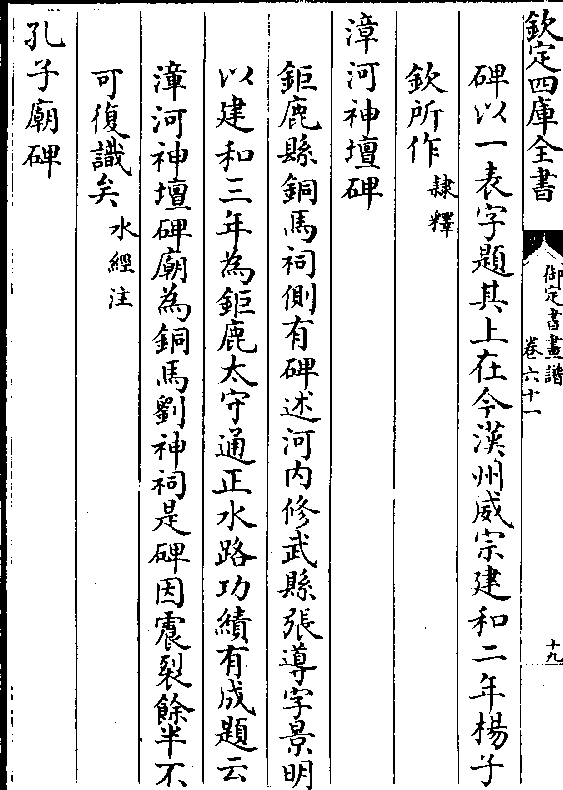 欽定四庫全書
御定書畫譜
卷六十一
十九
碑以一表字題其上在今漢州威宗建和二年楊子
欽所作隷釋
漳河神壇碑
鉅鹿縣銅馬祠側有碑述河内修武縣張導字景明
以建和三年為鉅鹿太守通正水路功績有成題云
漳河神壇碑廟為銅馬劉神祠是碑因震裂餘半不
可復識矣水經注
孔子廟碑